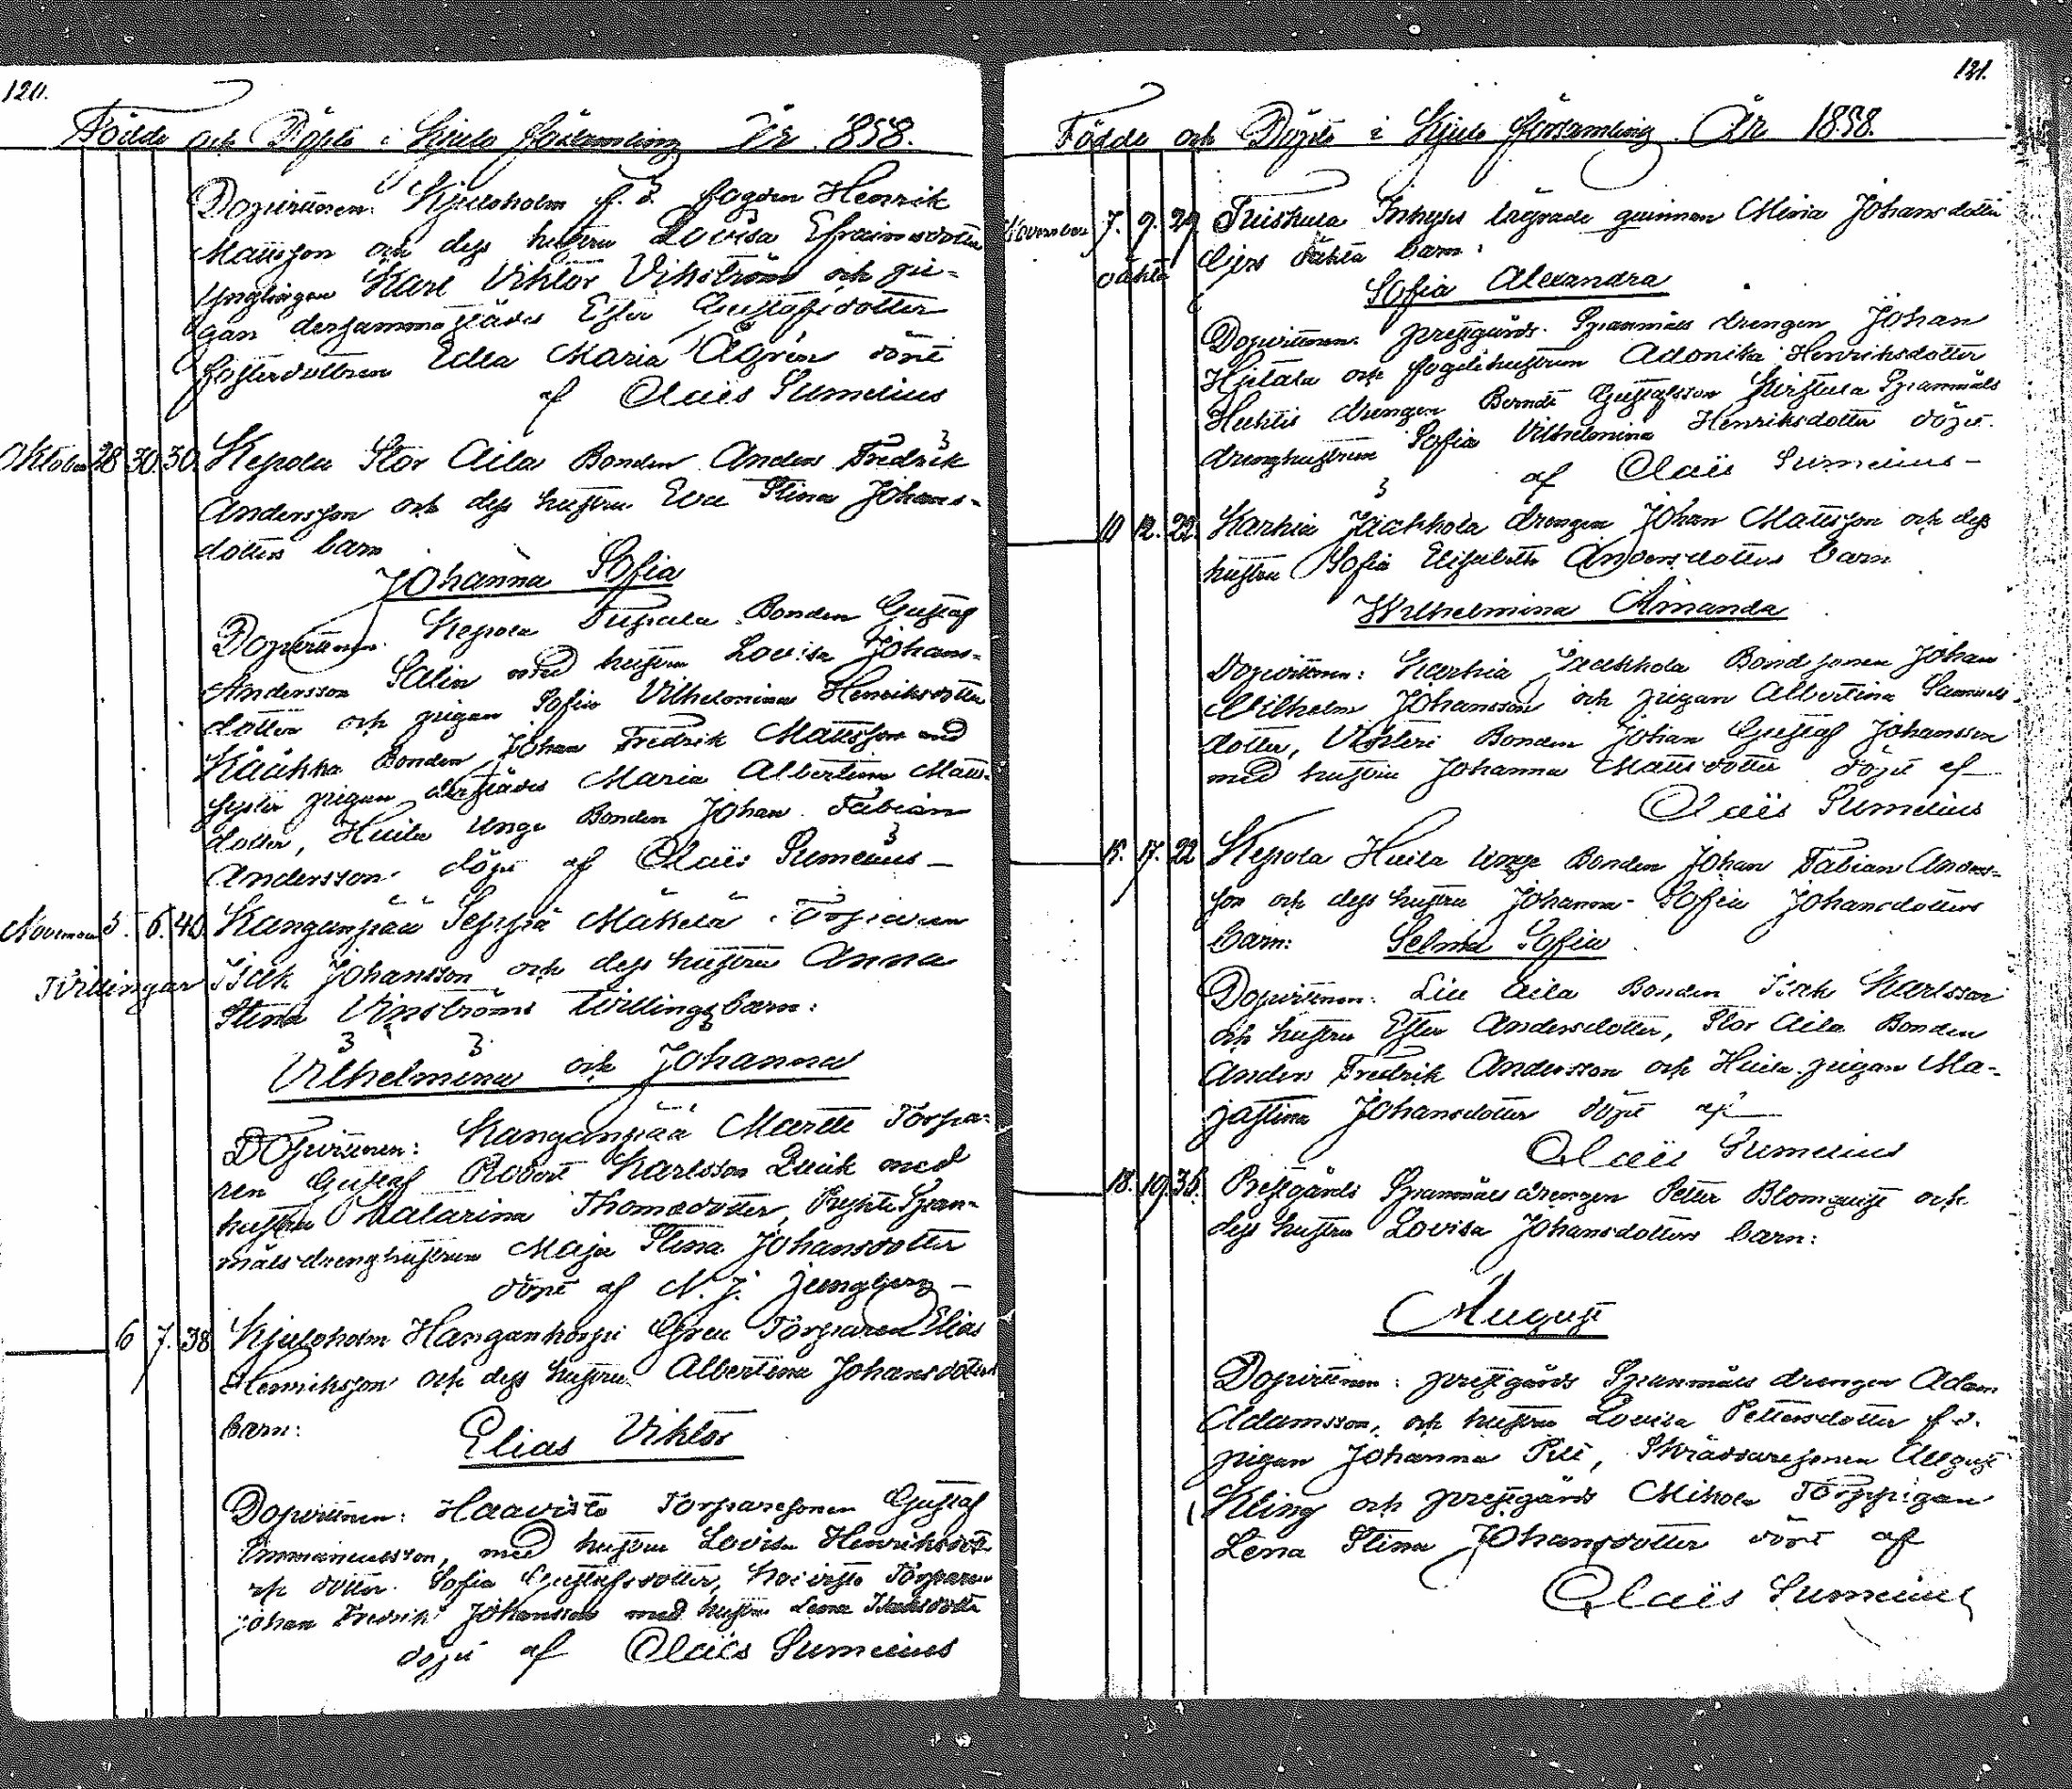 120.
Födde och Döpte i Kjulo församling År 1858.
Dopvittnen: Kjuloholm f. d. fogden Henrik
Mattsson och dess hustru Lovisa Efraimsdotter
Ynglingen Karl Viktor Vikström och pi-
gan dersammastädes Ester Gustafsdotter
fosterdottren Edla Maria Ågrén döpt
af Claës Sumelius
Oktober 28 30. 30. Kepola Stor Aila Bonden Anders Fredrik
Andersson och dess hustru Eva Stina Johans-
dotters barn
Johanna Sofia
Dopvittnen: Kepola Bonden Gustaf
Andersson Salin med hustru Lovisa Johans-
dotter och pigan Sofia Vilhelmina Henriksdotter
Bonden Johan Fredrik Mattsson med
syster pigan derstädes Maria Albertina Matts-
dotter, Huila Unge Bonden Johan Fabian
Andersson döpt af Claës Sumelius –
November 5. 6. 40. Kanganpää Seppä Mäkelä Torparen
Tvillingar Isak Johansson och dess hustru Anna
Stina Vinströms tvillingsbarn:
Vilhelmina och Johanna
Dopvittnen: Kanganpää Martti Torpa-
ren Gustaf Robert Karlsson Quick med
hustru Katarina Thomasdotter, Span-
målsdrenghustrun Maja Stina Johansdotter
döpt af N. J. Ljungberg –
6 7. 38 Kjuloholm Hangankorpi Torparen Elias
Henriksson och dess hustru Albertina Johansdotters
barn:
Elias Viktor
Dopvittnen: Haavisto Torparesonen Gustaf
Immanuelsson, med hustru Lovisa Henriksdot-
dotter Sofia Gustafsdotter, Torparen
Johan Fredrik Johansson med hustru Lena Isaksdotter
döpt af Claës Sumelius
121.
Födde och Döpte i Kjulo församling År 1858.
November 7. 9. 29. Inhyses lägrade quinnan Maria Johansdotter
oäkta oäkta barn:
Sofia Alexandra
Dopvittnen: prestgårds Spanmåls drengen Johan
Hjelala och fogdehustrun Adonika Henriksdotter
Huhtis drengen Berndt Gustafsson Spanmåls
drenghustrun Sofia Vilhelmina Henriksdotter döpt
af Claës Sumelius –
10 12. 22. Karhia Jaakkola drengen Johan Mattsson och dess
hustru Sofia Elisabeth Andersdotters barn
Wilhelmina Amanda
Dopvittnen: Karhia Jaakkola Bondsonen Johan
Vilhelm Johansson och pigan Albertina Samuels-
dotter, Bonden Johan Gustaf Johansson
med hustru Johanna Mattsdotter döpt af
Claës Sumelius
15. 17. 22 Kepola Huila Unge Bonden Johan Fabian Anders-
son och dess hustru Johanna Sofia Johansdotters
barn: Selma Sofia
Dopvittnen: Lill Aila Bonden Isak Karlsson
och hustru Ester Andersdotter, Stor Aila Bonden
Anders Fredrik Andersson och Huila pigan Ma-
jastina Johansdotter döpt af
Claës Sumelius
18. 19. 35. Prestgårds Spanmålsdrengen Petter Blomquist och
dess hustru Lovisa Johansdotters barn:
August
Dopvittnen: prestgårds Spanmåls drengen Adam
Adamsson, och hustru Lovisa Pettersdotter f. d.
pigan Johanna Pill, Skräddaresonen August
Kling och prestgårds Mikola Torppigan
Lena Stina Johansdotter döpt af
Claës Sumelius